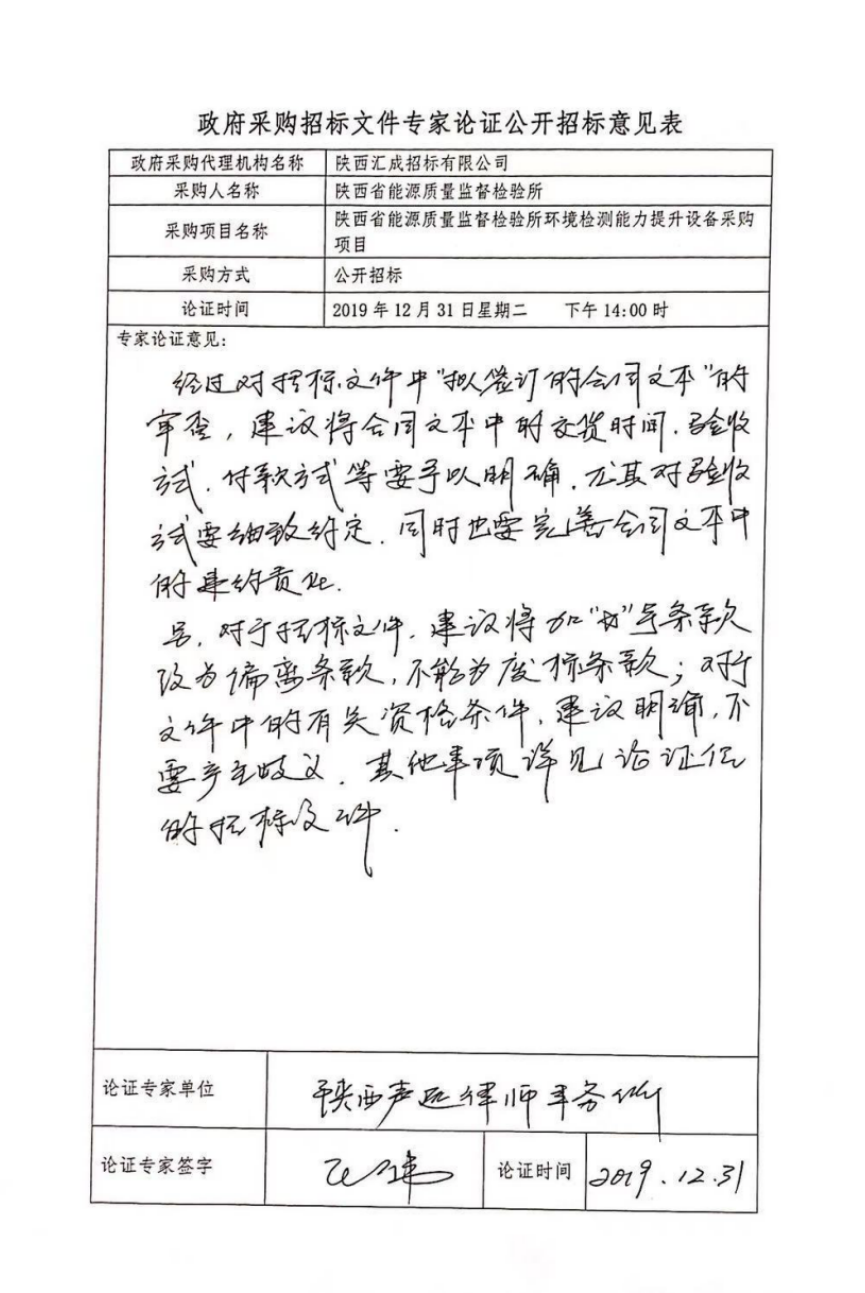 政府采购招标文件专家论证公开招标意见表
政府采购代理机构名称 陕西汇成招标有限公司
采购人名称 陕西省能源质量监督检验所
采购项目名称 陕西省能源质量监督检验所环境检测能力提升设备采购
项目
采购方式 公开招标
论证时间 2019年12月31日星期二 下午14:00时
专家论证意见:
经过对招标文件中"拟签订的合同文本"的
审查,建议将合同文本中的交货时间、验收
方式、付款方式等要予以明确,尤其对验收
方式要细致约定,同时也要完善合同文本中
的违约责任.
另,对于招标文件,建议将加" "号条款
改为偏离条款,不能为废标条款;对于
文件中的有关资格条件,建议明确,不
要产生歧义.其他事项详见论证后
的招标文件.
论证专家单位 陕西声远律师事务所
论证专家签字 论证时间 2019.12.31